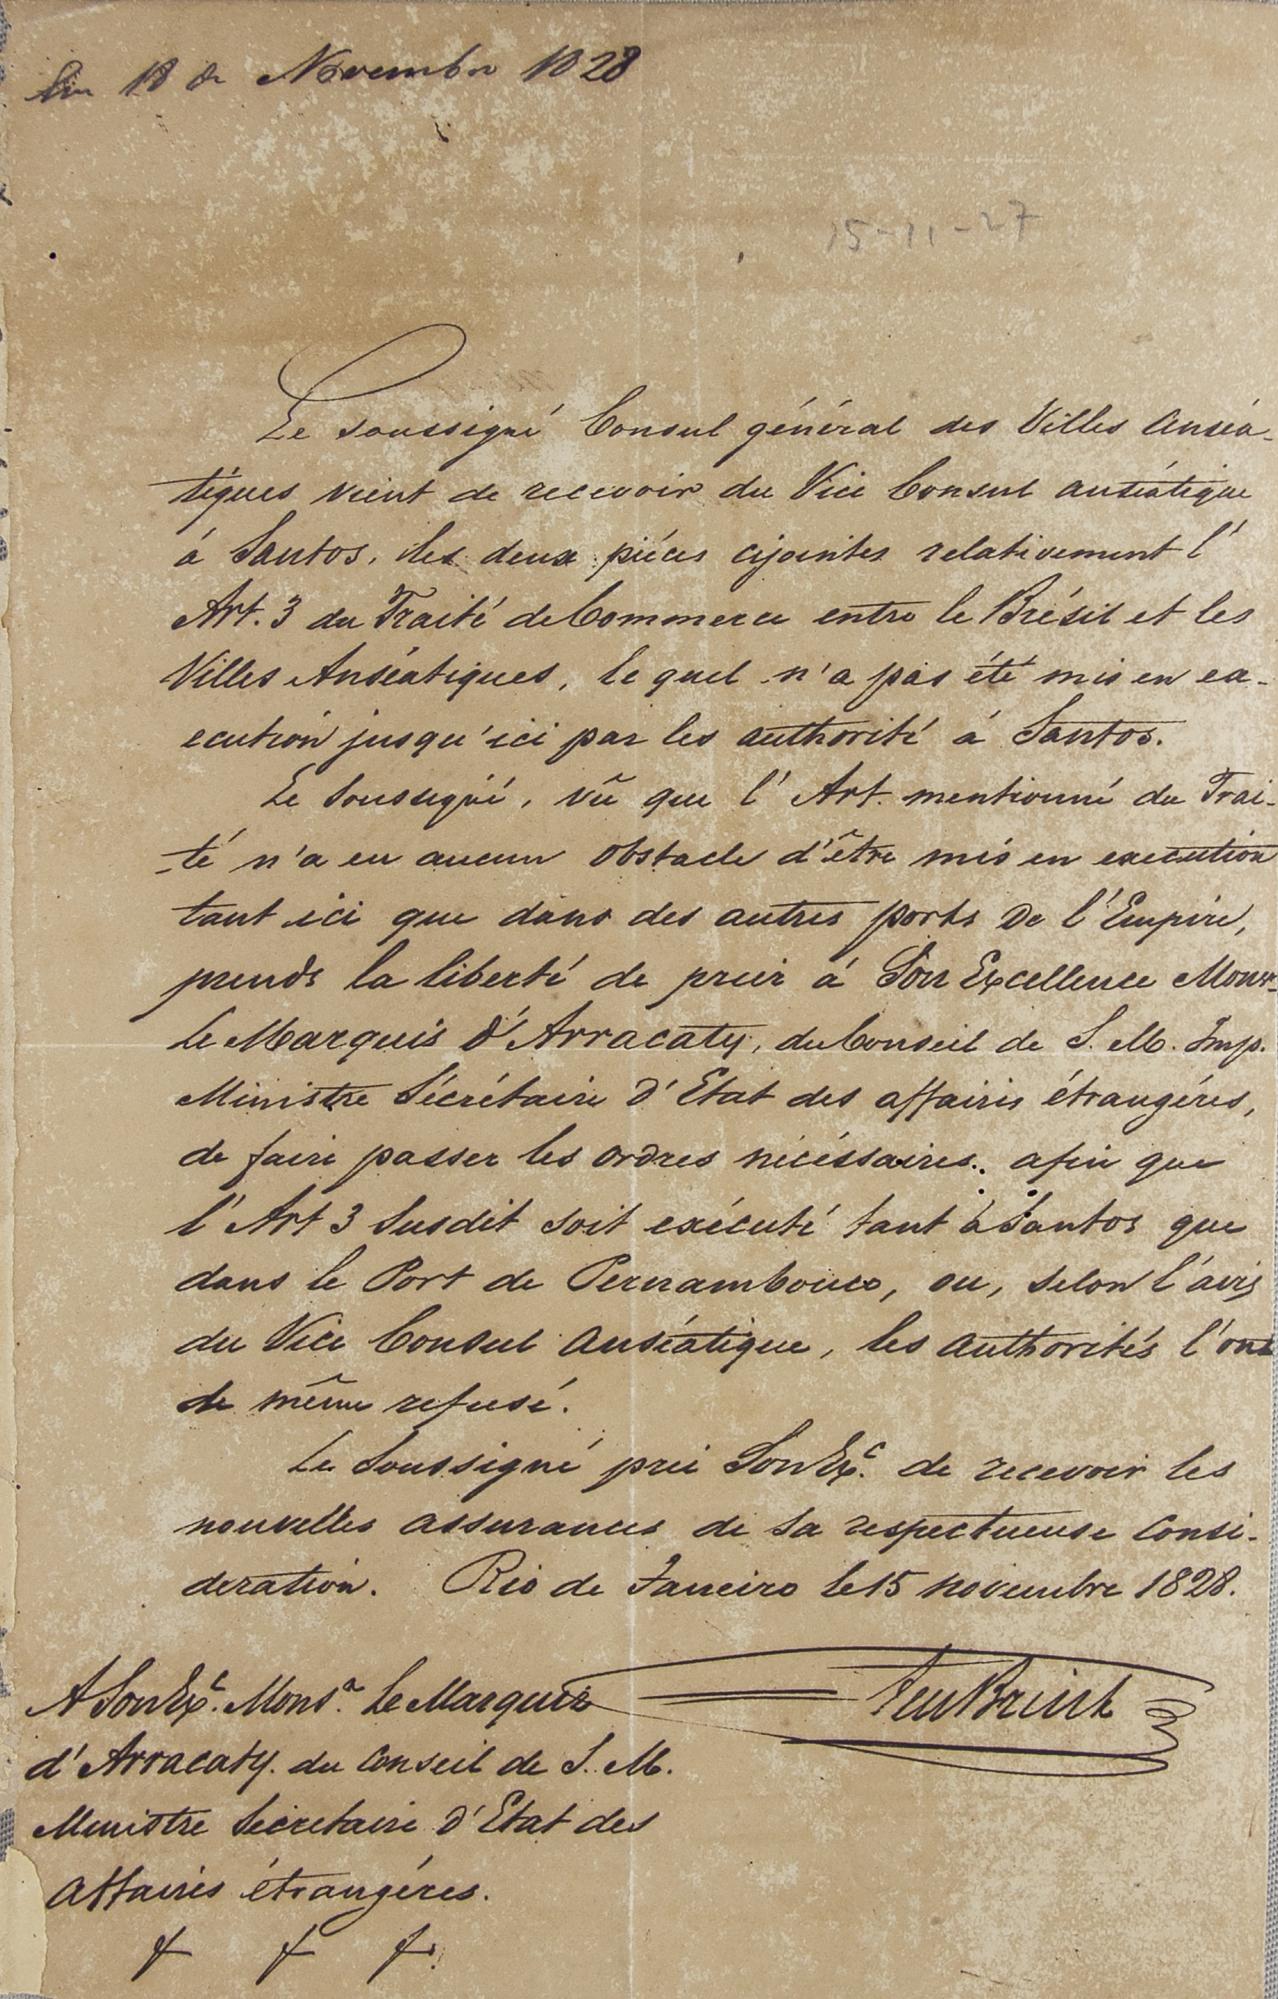 Em 18 de Novembro 1828
15-11-27
Le soussigné Consul général des Villes Anséa-
tiques vient de recevoir du Vice Consul anséatique
à Santos, les deux piéces cijointes relativement l'
Art. 3 du Traité de Commerce entre le Brésil et les
Villes Anséatiques, le quel n'a pas été mis en ex-
ecution jusqu'ici par les authorité á Santos.
Le Soussigné, vû que l'Art. mentionné du Trai-
-té n'a eu aucun obstacle d'être mis en execution
tant ici que dans des autres ports de l'Empire,
prends la liberté de prier á Son Excellence Monsr
le Marquis d'Arracaty, du Conseil de S. M. Imp.
Ministre Sécrétaire d'Etat des affaires étrangéres,
de faire passer les ordres nécéssaires. afin que
l'Art 3 Susdit soit exécuté tant á Santos que
dans le Port de Pernambouco, ou, selon l'avis
du Vice Consul anséatique, les authorités l'ont
de même refusé.
Le Soussigné prie Son Exc. de recevoir les
nouvelles assurances de sa respectueuse consi-
deration. Rio de Janeiro le 15 novembre 1828.
Ten Brink
A Son Exc. Monsr. Le Marquis
d'Arracaty. du Conseil de S. M.
Ministre Sécretaire d'Etat des
affaires étrangéres.